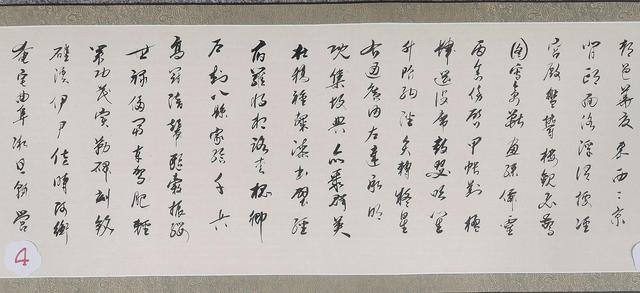 都邑華夏東西二京
背邙面洛浮渭據涇
宮殿盤鬱樓觀飛驚
圖寫禽獸畫綵仙靈
丙舍傍啟甲帳對楹
肆筵設席鼓瑟吹笙
升階納陛弁轉疑星
右通廣內左達承明
既集墳典亦聚群英
杜稿鍾隸漆書壁經
府羅將相路俠槐卿
戶封八縣家給千兵
高冠陪輦驅轂振纓
世祿侈富車駕肥輕
策功茂實勒碑刻銘
磻溪伊尹佐時阿衡
奄宅曲阜微旦孰營
4